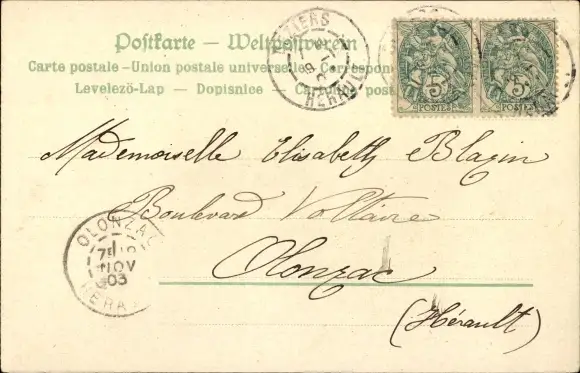 Postkarte — Weltpostverein
Carte postale - Union postale universelle.
Levelező-Lap — Dopisnice —
BÉZIERS
HÉRAULT
5 5
POSTES POSTES
Mademoiselle Elisabeth Blagin
Boulevard Voltaire
Olonzac
(Hérault)
OLONZAC
NOV
03
HERAULT